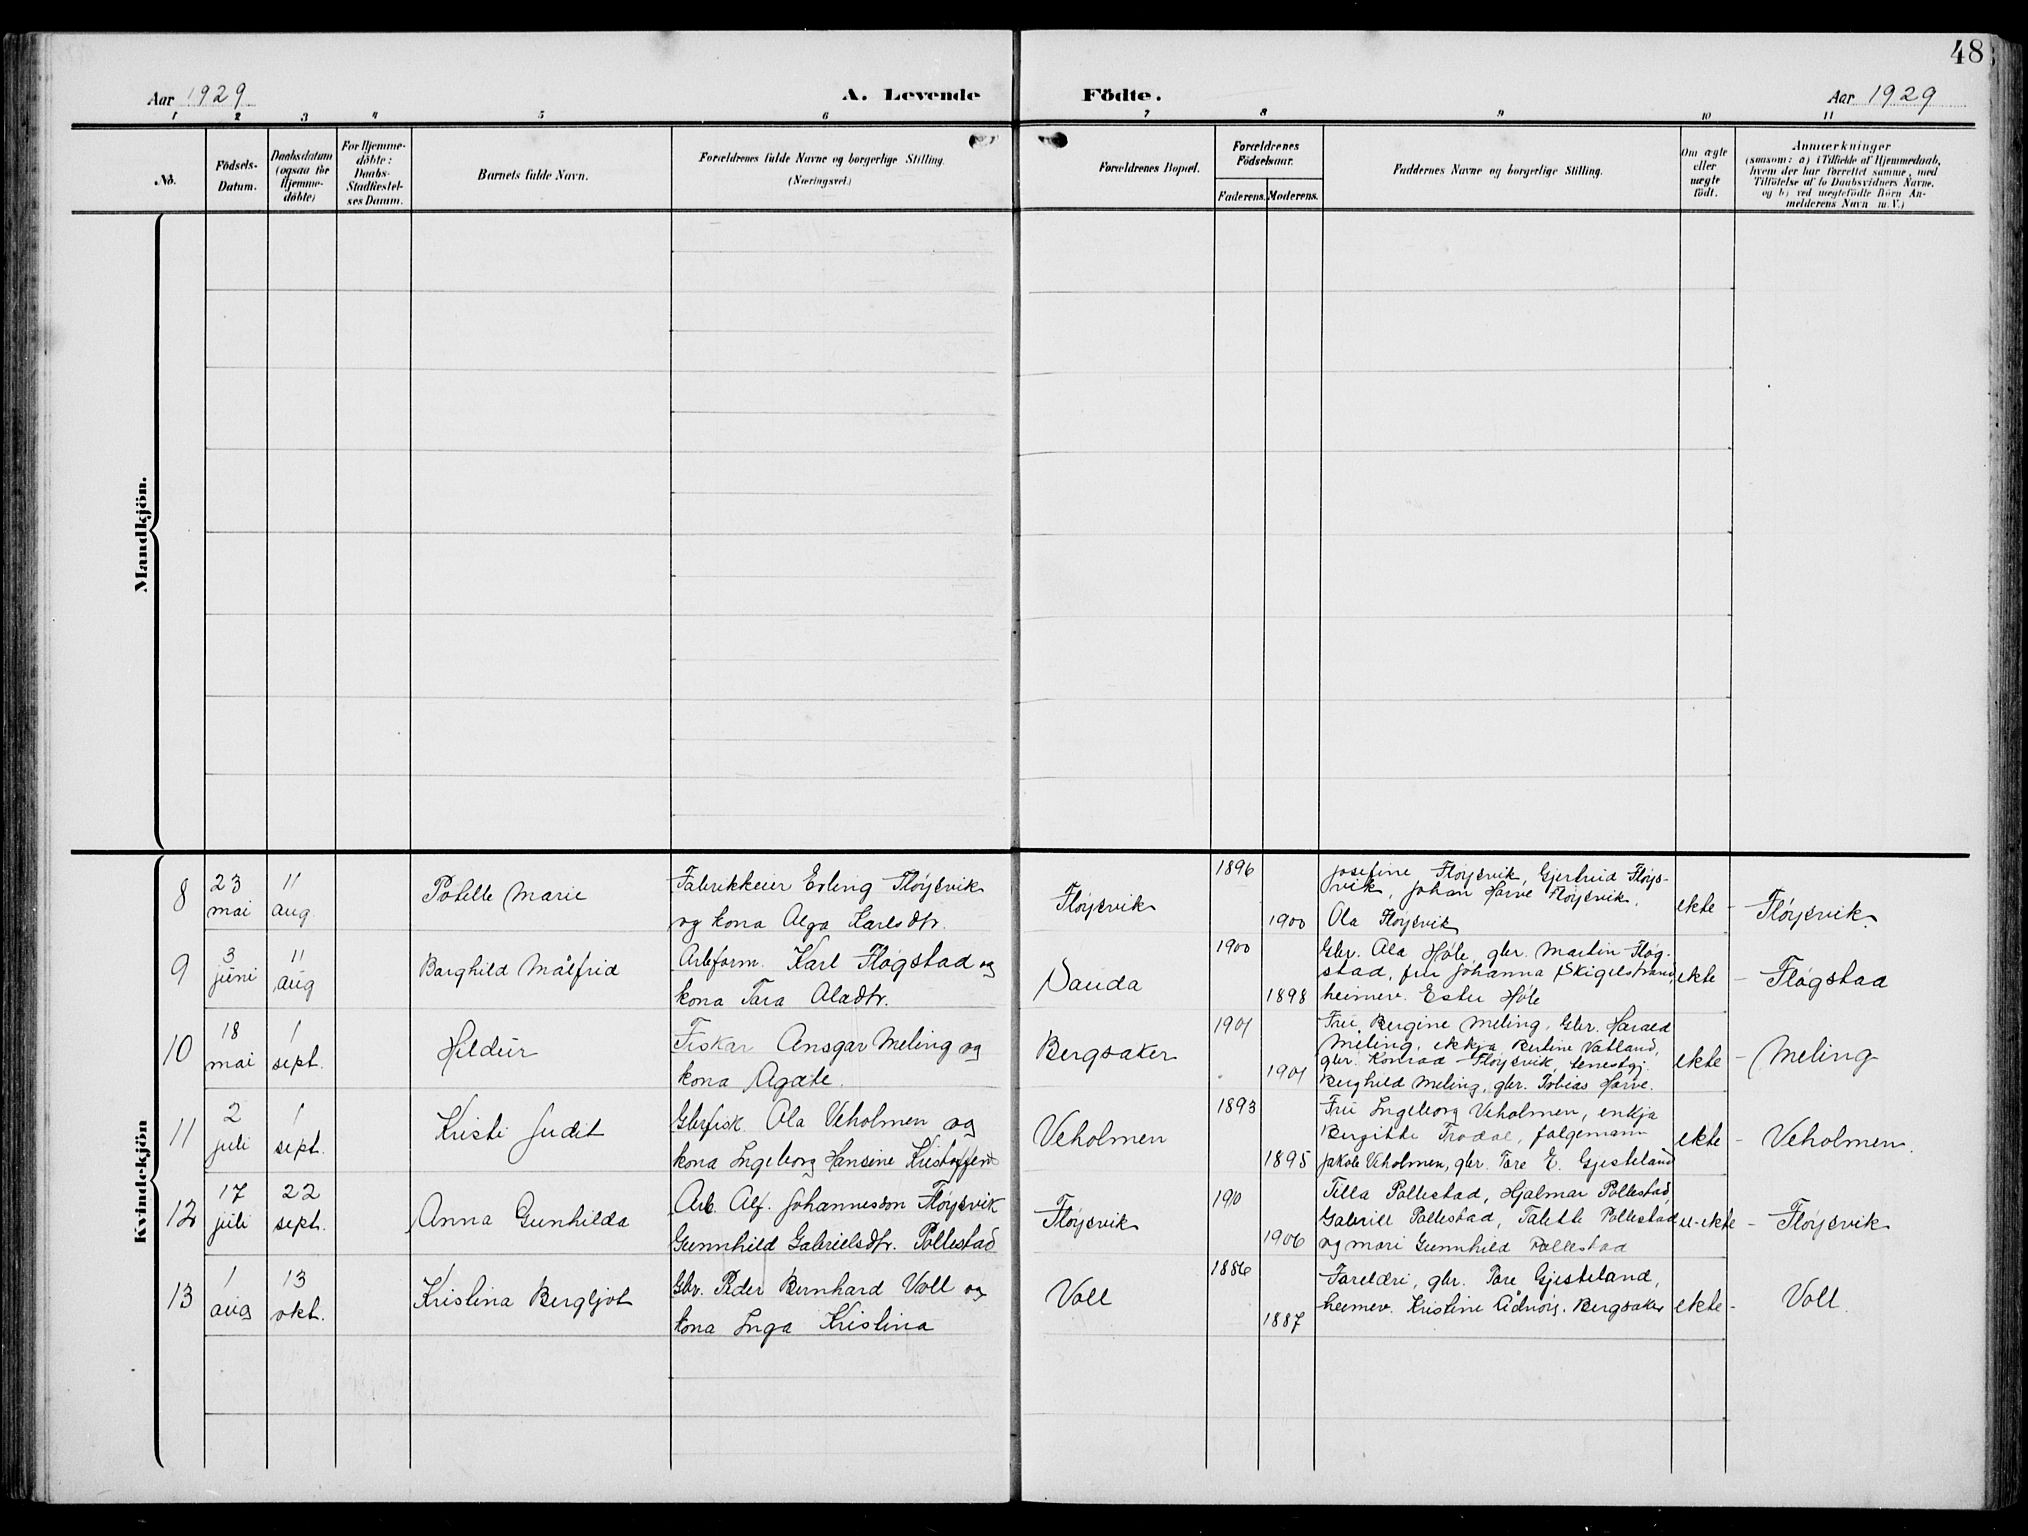 48
Aar 1929 A. Levende Födte. Aar 1929
1 2 3 4 5 6 7 8 9 10 11
No.
Födsels-
Datum.
Daabsdatum
(ogsaa for
Hjemme-
döbte)
For Hjemme-
döbte:
Daabs-
Stadfæstel-
ses Datum.
Barnets fulde Navn.
Forældrenes fulde Navne og borgerlige Stilling.
(Næringsvei.)
Forældrenes Bopæl.
Forældrenes
Födselsaar.
Faderens. Moderens.
Faddernes Navne og borgerlige Stilling.
Om ægte
eller
uægte
födt.
Anmærkninger
(saasom: a) i Tilfælde af Hjemmedaab,
hvem der har forrettet samme, med
Tilföielse af to Daabsvidners Navne,
og b) ved uægtefödte Börn An-
melderens Navn m. V.)
Mandkjön.
Kvindekjön
8
23
mai
11
aug.
Marie
Fabrikkeier Erling Fløysvik
og kona Alga Karlsdtr.
Fløysvik
1896
1900
Josefine Fløysvik, Gjertrud Fløys-
vik, Johan Harve Fløysvik,
Ola Fløysvik
ekte - Fløysvik
9
3
juni
11
aug
Borghild Målfrid
Arbform. Karl Fløgstad og
kona Tora Oladtr.
Sauda
1900
1898
Gbr. Ola Høle, gbr. Martin Fløg-
stad, fru Johanna Skigelstrand,
heimev. Ester Høle
ekte - Fløgstad
10
18
mai
1
sept.
Hildur
Fiskar Ansgar Meling og
kona Agate.
Bergsaker
1901
1901
Fru Bergine Meling, Gbr. Harald
Meling, ekkja Bertine Vatland,
gbr. Konrad Fløysvik, tenestgj.
Berghild Meling, gbr. Tobias Harve.
ekte - Meling
11
2
juli
1
sept.
Kristi Judit
Gbrfisk. Ola Veholmen og
kona Ingeborg Hansine Kristoffersd
Veholmen
1893
1895
Fru Ingeborg Veholmen, enkja
Bergitte Trodal, folgemann
Jakob Veholmen, gbr. Tore E. Gjesteland
ekte - Veholmen.
12
17
juli
22
sept.
Anna Gunhilda
Arb. Alf. Johannesson Fløysvik
Gunnhild Gabrielsdtr. Pollestad
Fløysvik
1906
Tilla Pollestad, Hjalmar Pollestad,
Gabriel Pollestad, Talette Pollestad
og mori Gunnhild Pollestad
u-ekte - Fløysvik
13
1
aug
13
okt.
Kristina Bergljot
Gbr. Peder Bernhard Voll og
kona Inga Kristina
Voll
1886
1887
Foreldri, gbr. Tore Gjesteland,
heimev. Kristine Ådnøy, Bergsaker
ekte - Voll